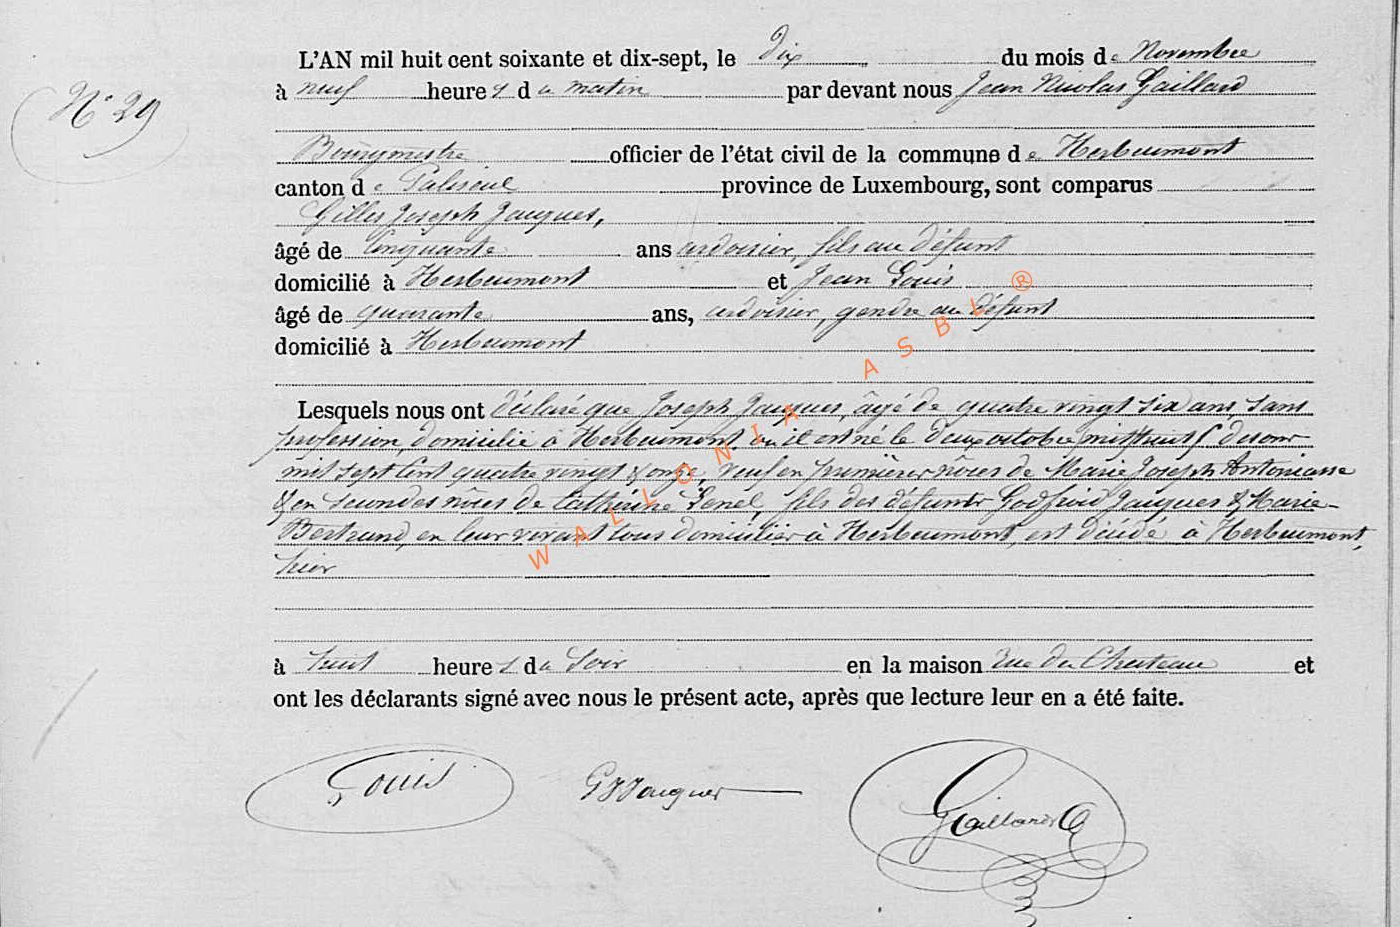 L'AN mil huit cent soixante et dix-sept, le Dix du mois de Novembre
N° 29
à neuf heures du matin par devant nous Jean Nicolas Gaillard
Bourgmestre officier de l'état civil de la commune de Herbeumont
canton de Paliseul province de Luxembourg, sont comparus
Gilles Joseph Jacques,
âgé de Cinquante ans ardoisier, fils au défunt
domicilié à Herbeumont et Jean Louis
âgé de quarante ans, ardoisier, gendre au défunt
domicilié à Herbeumont
Lesquels nous ont déclaré que Joseph Jacques, âgé de quatre vingt six ans, sans
profession, domicilié à Herbeumont, où il est né le deux octobre
mil sept cent quatre vingt & onze, veuf en premières nôces de Marie Joseph Antoniasse
& en secondes nôces de Catherine, fils des défunts Godfrid Jacques & Marie
Bertrand, en leur vivant tous domiciliés à Herbeumont, est décédé à Herbeumont,
hier
à huit heures du soir en la maison rue du Chateau et
ont les déclarants signé avec nous le présent acte, après que lecture leur en a été faite.
Louis GJJacques Gaillard
WALLONIA ASBL ®